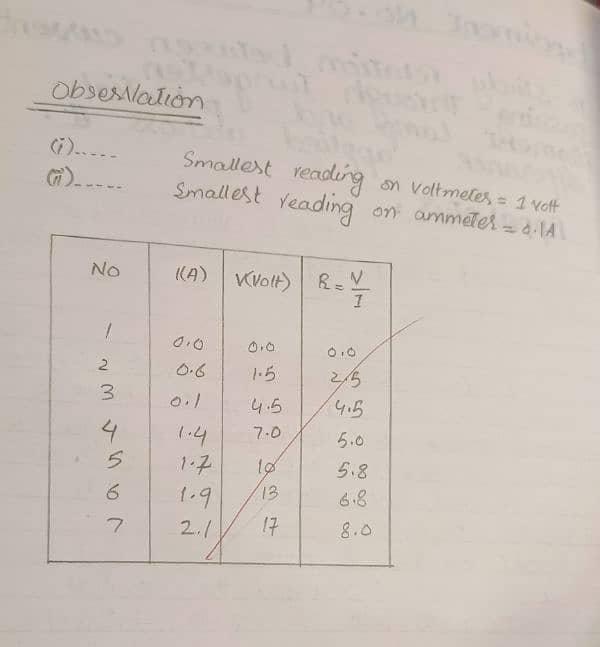 Observation
(i)..... Smallest reading on voltmeter = 1 volt
(ii)..... Smallest reading on ammeter = 0.1A
No I(A) V(Volt) R = V/I
1 0.0 0.0 0.0
2 0.6 1.5 2.5
3 0.1 4.5 4.5
4 1.4 7.0 5.0
5 1.7 10 5.8
6 1.9 13 6.8
7 2.1 17 8.0